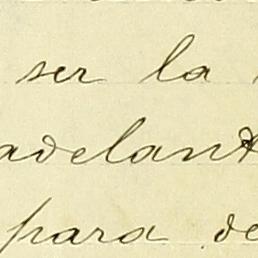 ser la
adelant
para de